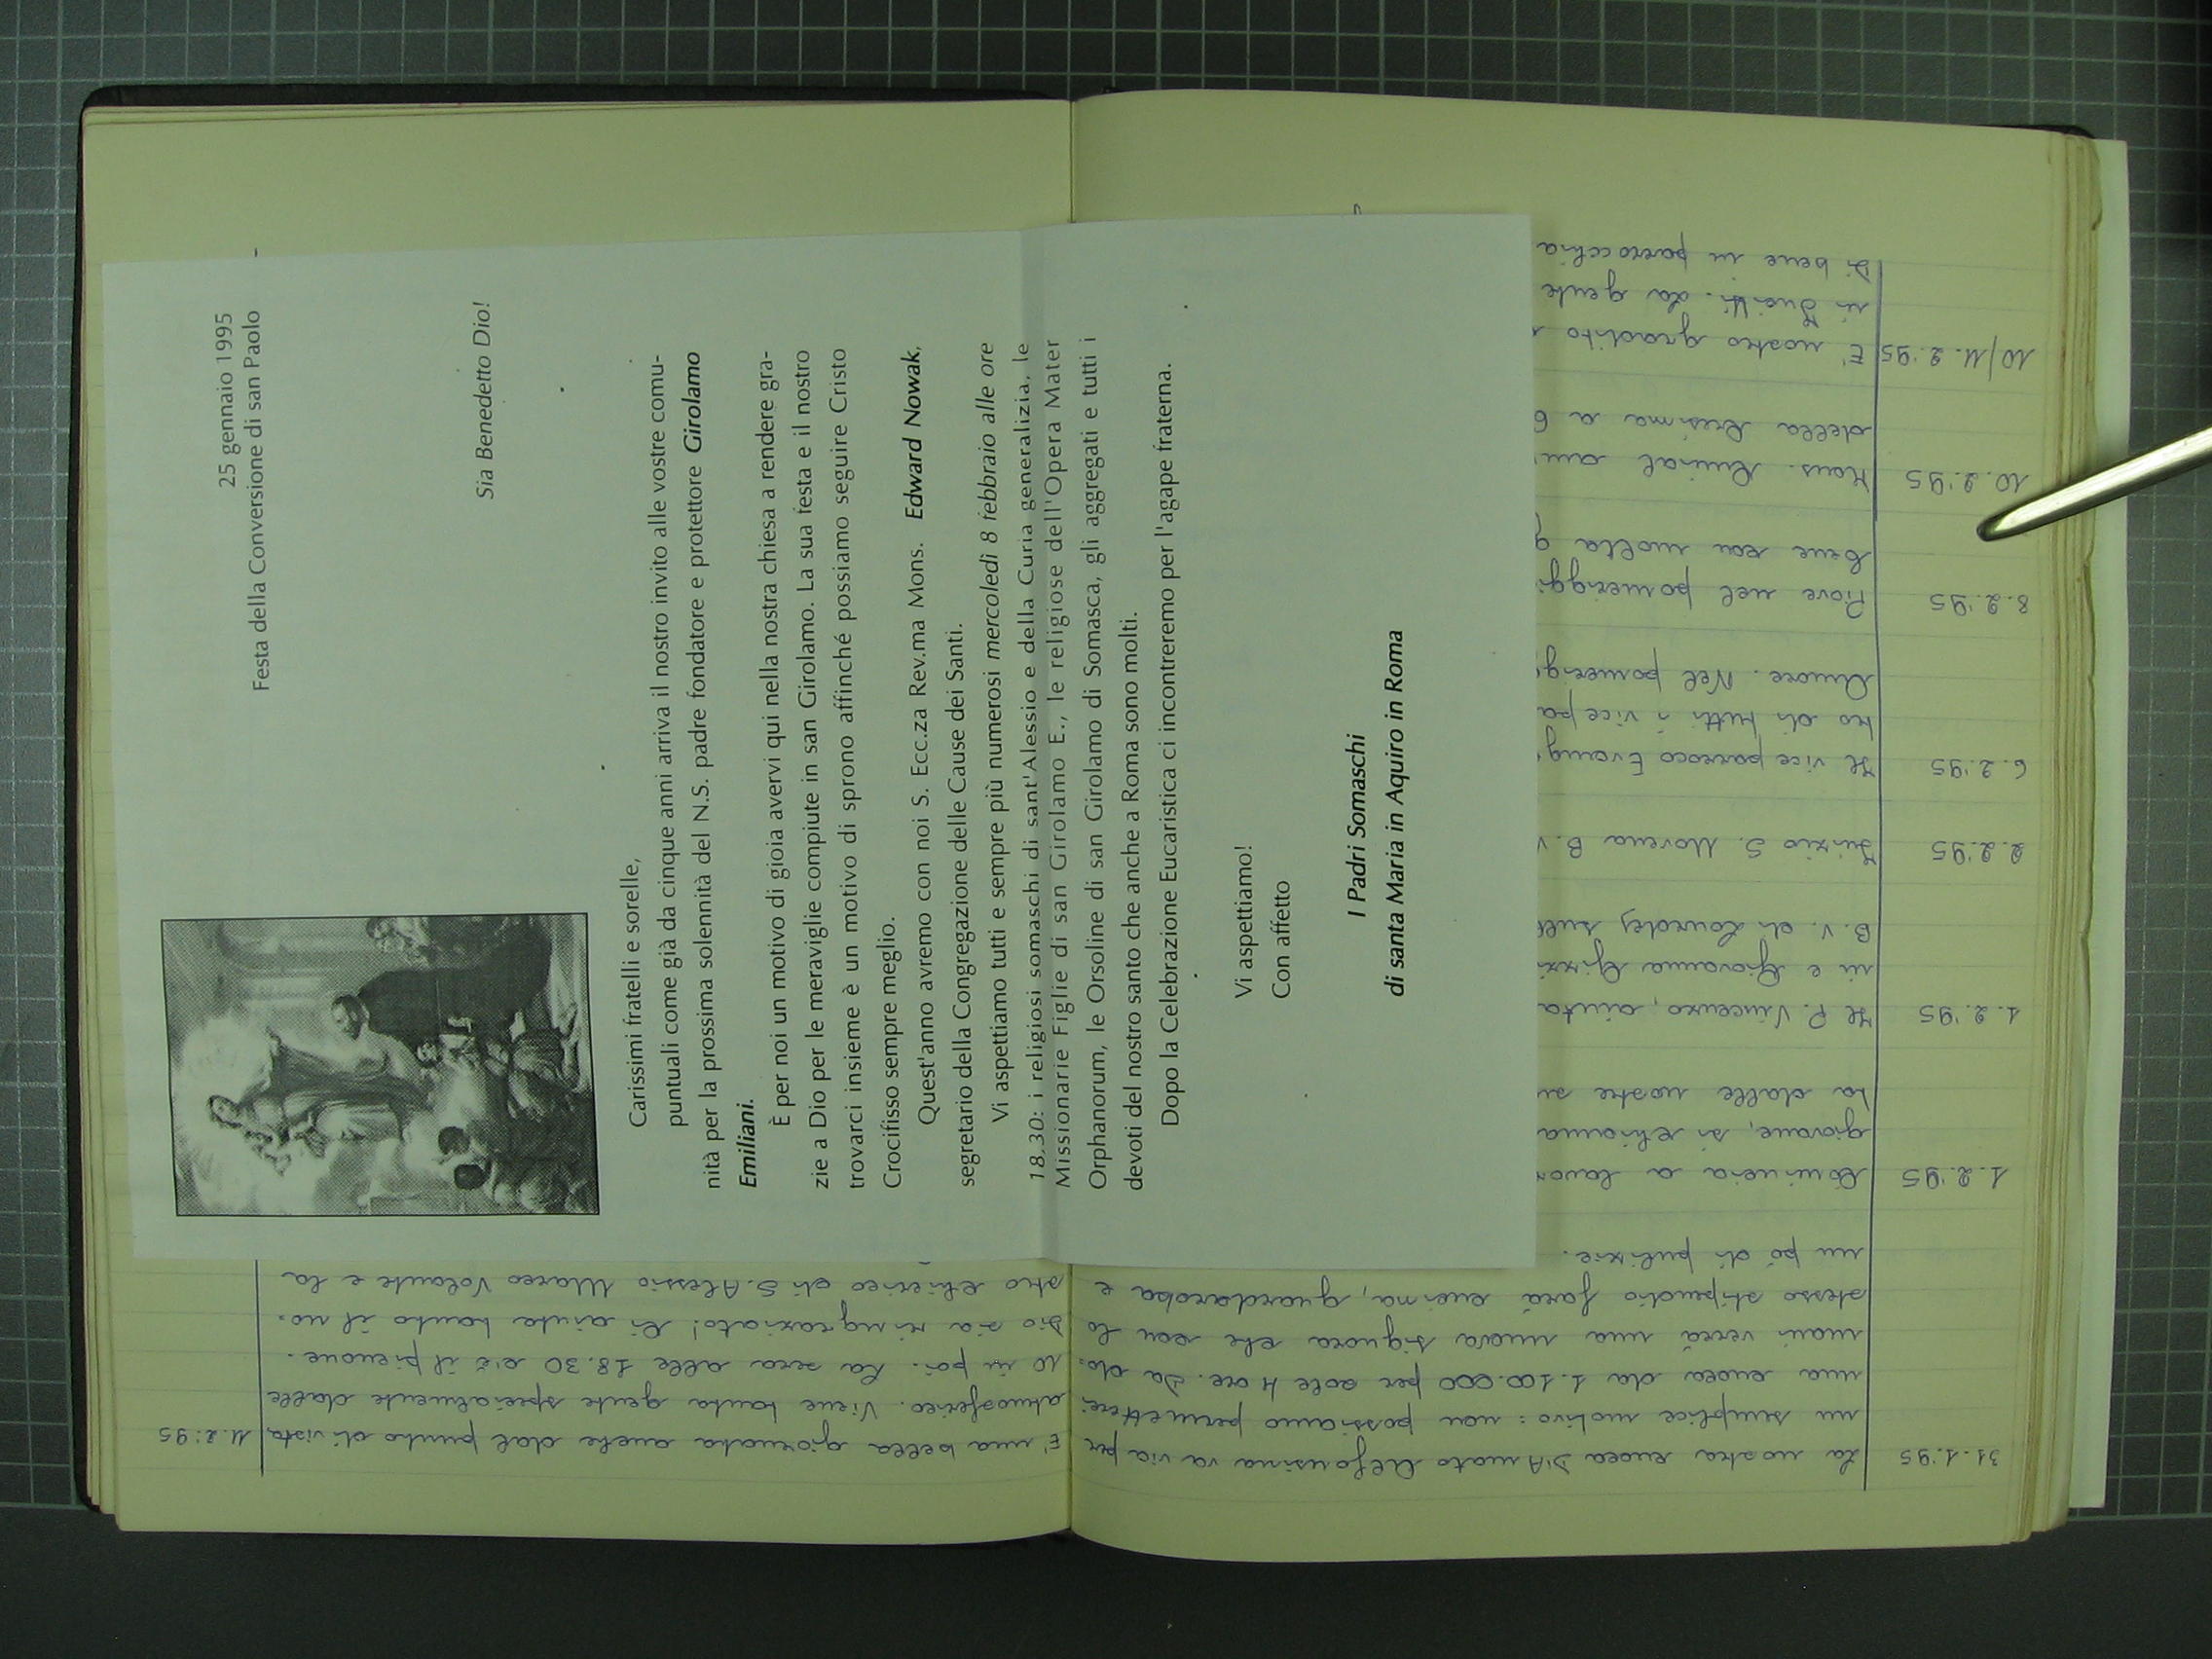 25 gennaio 1995
Festa della Conversione di san Paolo
Sia Benedetto Dio!
Carissimi fratelli e sorelle,
puntuali come già da cinque anni arriva il nostro invito alle vostre comu-
nità per la prossima solennità del N.S. padre fondatore e protettore Girolamo
Emiliani.
È per noi un motivo di gioia avervi qui nella nostra chiesa a rendere gra-
zie a Dio per le meraviglie compiute in san Girolamo. La sua festa e il nostro
trovarci insieme è un motivo di sprono affinché possiamo seguire Cristo
Crocifisso sempre meglio.
Quest'anno avremo con noi S. Ecc.za Rev.ma Mons. Edward Nowak,
segretario della Congregazione delle Cause dei Santi.
Vi aspettiamo tutti e sempre più numerosi mercoledì 8 febbraio alle ore
18.30: i religiosi somaschi di sant'Alessio e della Curia generalizia, le
Missionarie Figlie di san Girolamo E., le religiose dell'Opera Mater
Orphanorum, le Orsoline di san Girolamo di Somasca, gli aggregati e tutti i
devoti del nostro santo che anche a Roma sono molti.
Dopo la Celebrazione Eucaristica ci incontreremo per l'agape fraterna.
Vi aspettiamo!
Con affetto
I Padri Somaschi
di santa Maria in Aquiro in Roma
31.1.'95 La nostra cuoca D'Amato Alfonsina va via per
un semplice motivo: non possiamo permetterci
una cuoca da 1.100.000 per sole 4 ore. Da do-
mani verrà una nuova signora che con lo
stesso stipendio farà cucina, guardaroba e
un pò di pulizie.
1.2.'95 Comincia a lavor
giovane, si chiama
ta dalle nostre su
1.2.'95 Il P. Vincenzo, aiuta
ni e Giovanna
B. V. di Lourdes sull
2.2.'95 Inizio S. Novena B. V
6.2.'95 Il vice parroco Evang
tro di tutti i vice pa
Amore. Nel pomerig
8.2.'95 Piove nel pomeriggi
bene con molta g
10.2.'95 Mons. am
della Cresima a 6
10/11.2.'95 E' nostro gradito
in Duetti. La gente
di bene in parrocchia
11.2.'95 E' una bella giornata anche dal punto di vista
atmosferico. Viene tanta gente specialmente dalle
10 in poi. La sera alle 18.30 c'è il pienone.
Dio sia ringraziato! Ci aiuta tanto il no-
stro chierico di S. Alessio Marco Volante e la